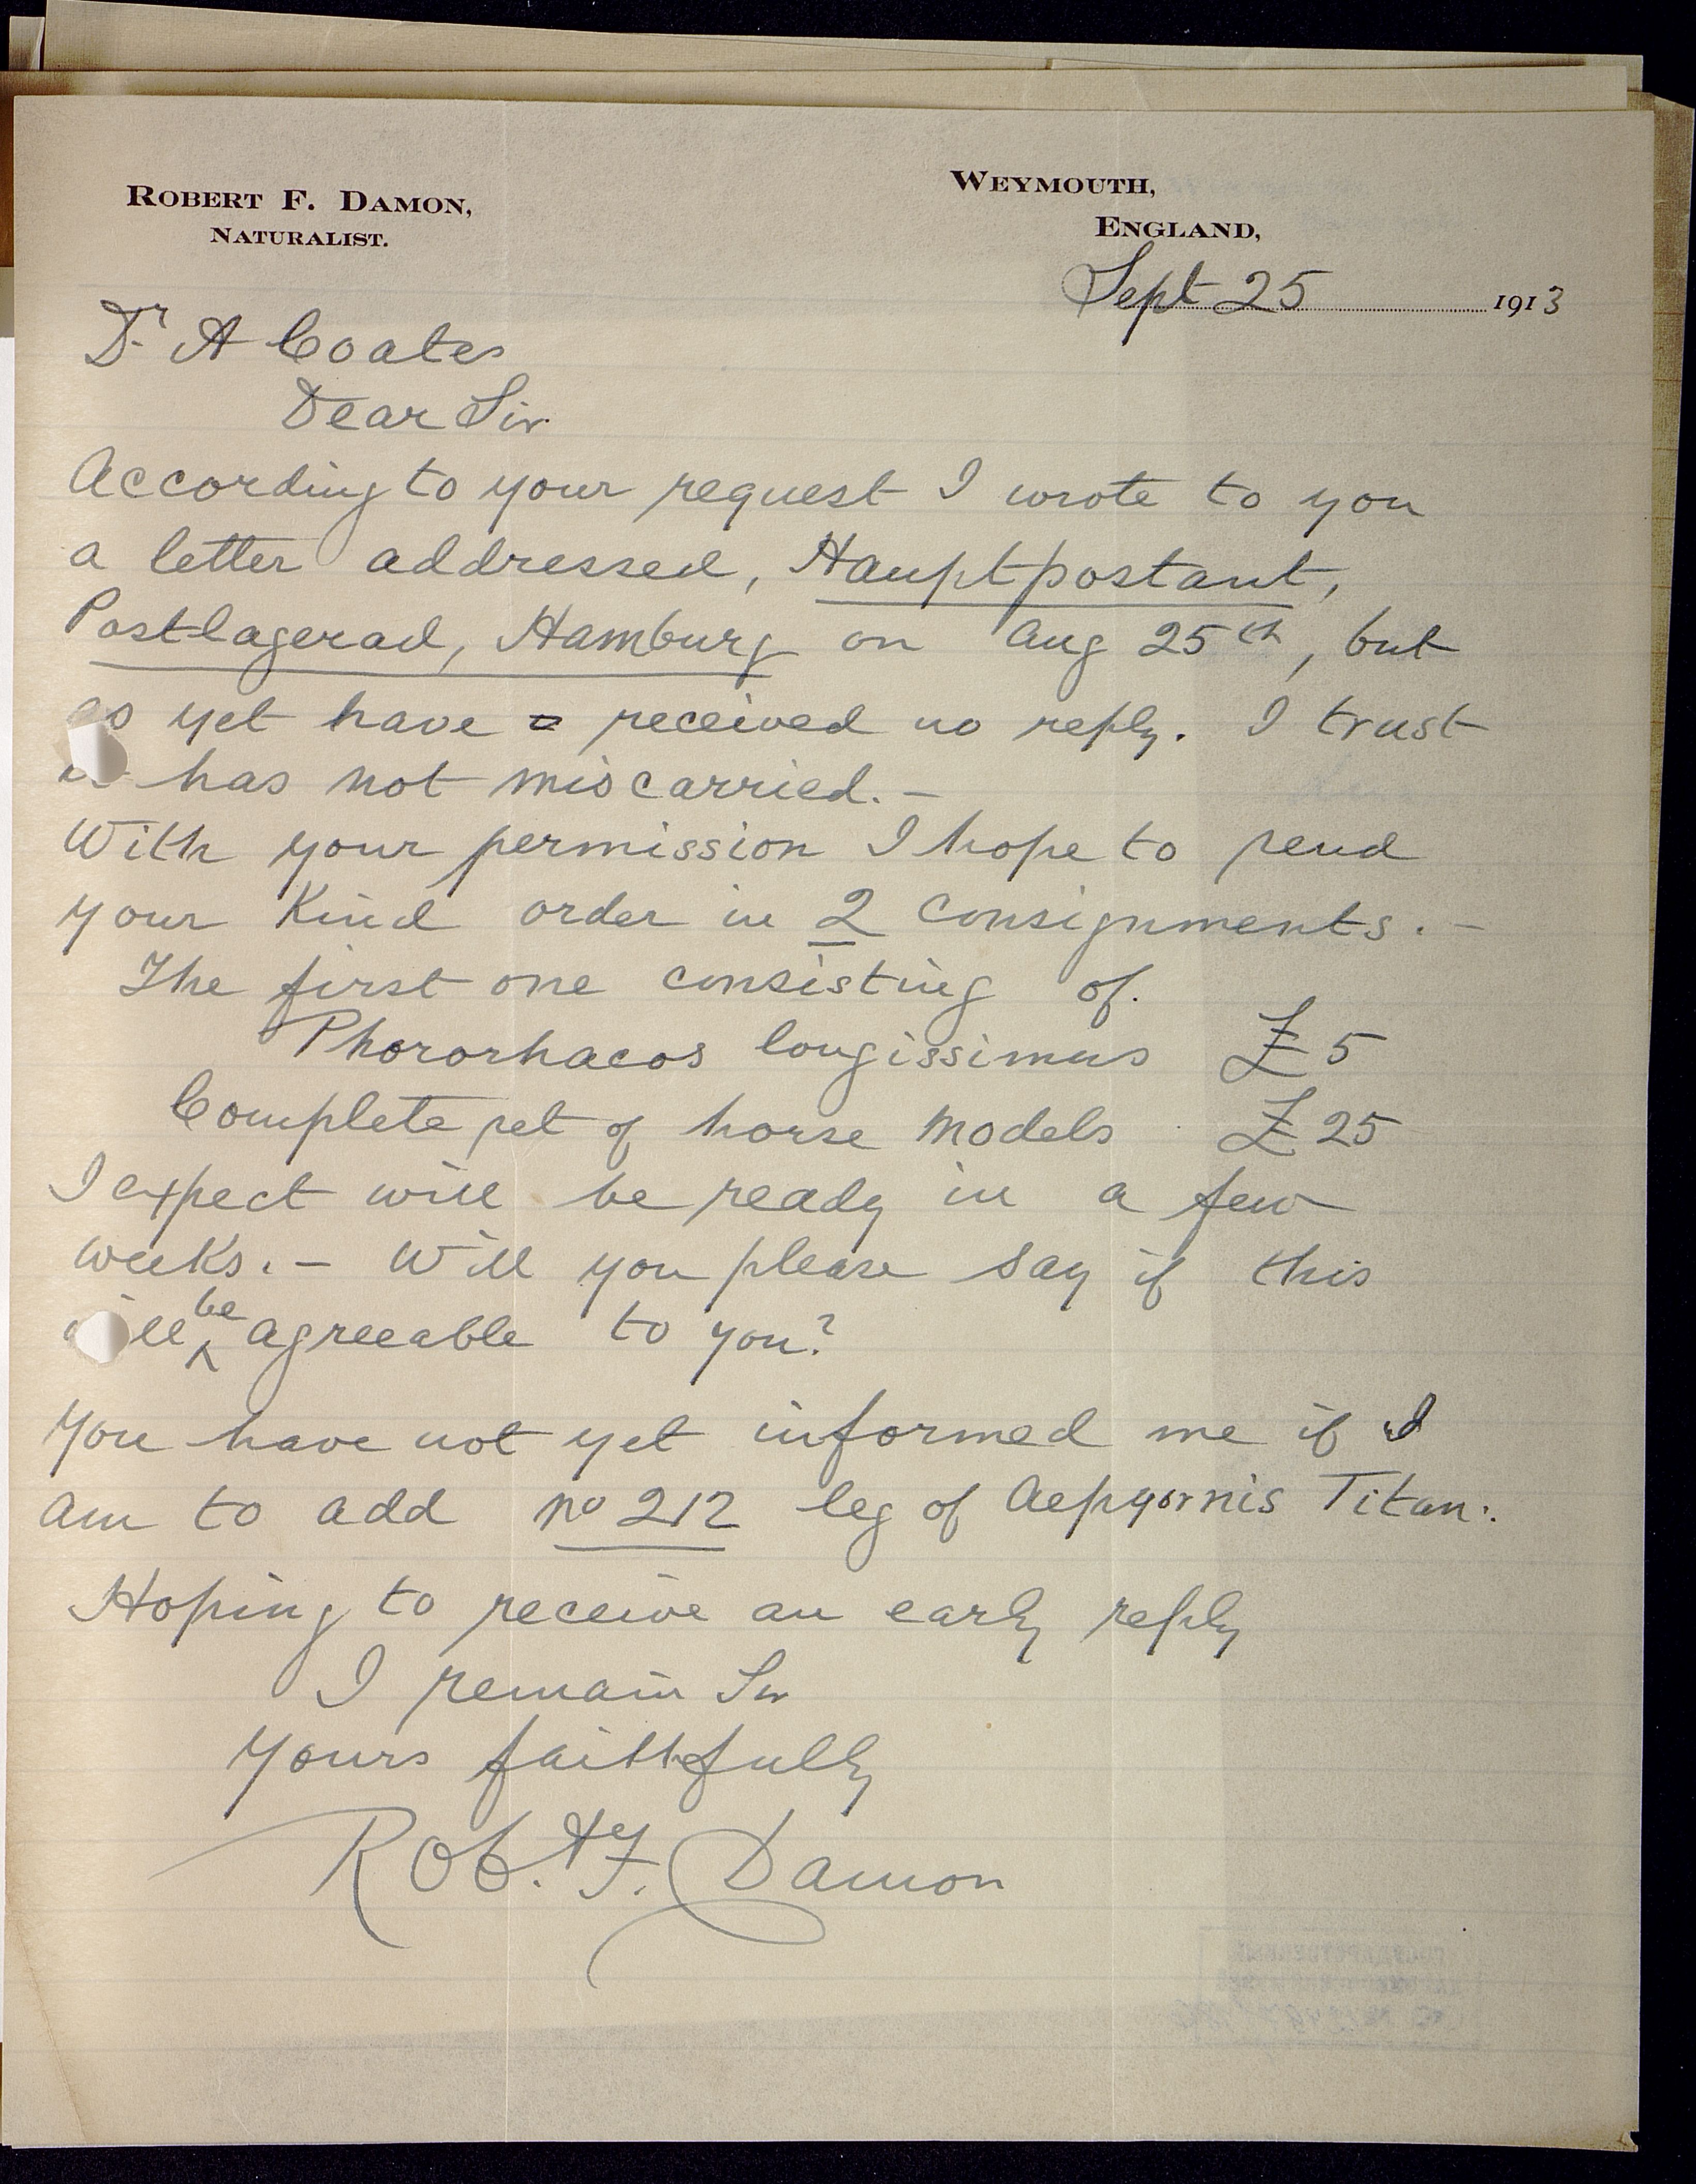 ROBERT F. DAMON,
NATURALIST.
WEYMOUTH,
ENGLAND,
Sept 25 1913
Dr A Coates
Dear Sir
According to your request I wrote to you
a letter addressed, Hauptpostant,
Postlagerad, Hamburg on Aug 25th, but
as yet have received no reply. I trust
it has not miscarried. -
With your permission I hope to send
your Kind order in 2 consignments. -
The first one consisting of.
Phororhacos longissimus £5
Complete set of horse models £25
I expect will be ready in a few
weeks. - Will you please say if this
will be agreeable to you?
You have not yet informed me if I
am to add no 212 leg of Aepyornis Titan:
Hoping to receive an early reply
I remain Sir
Yours faithfully
Robt. F. Damon